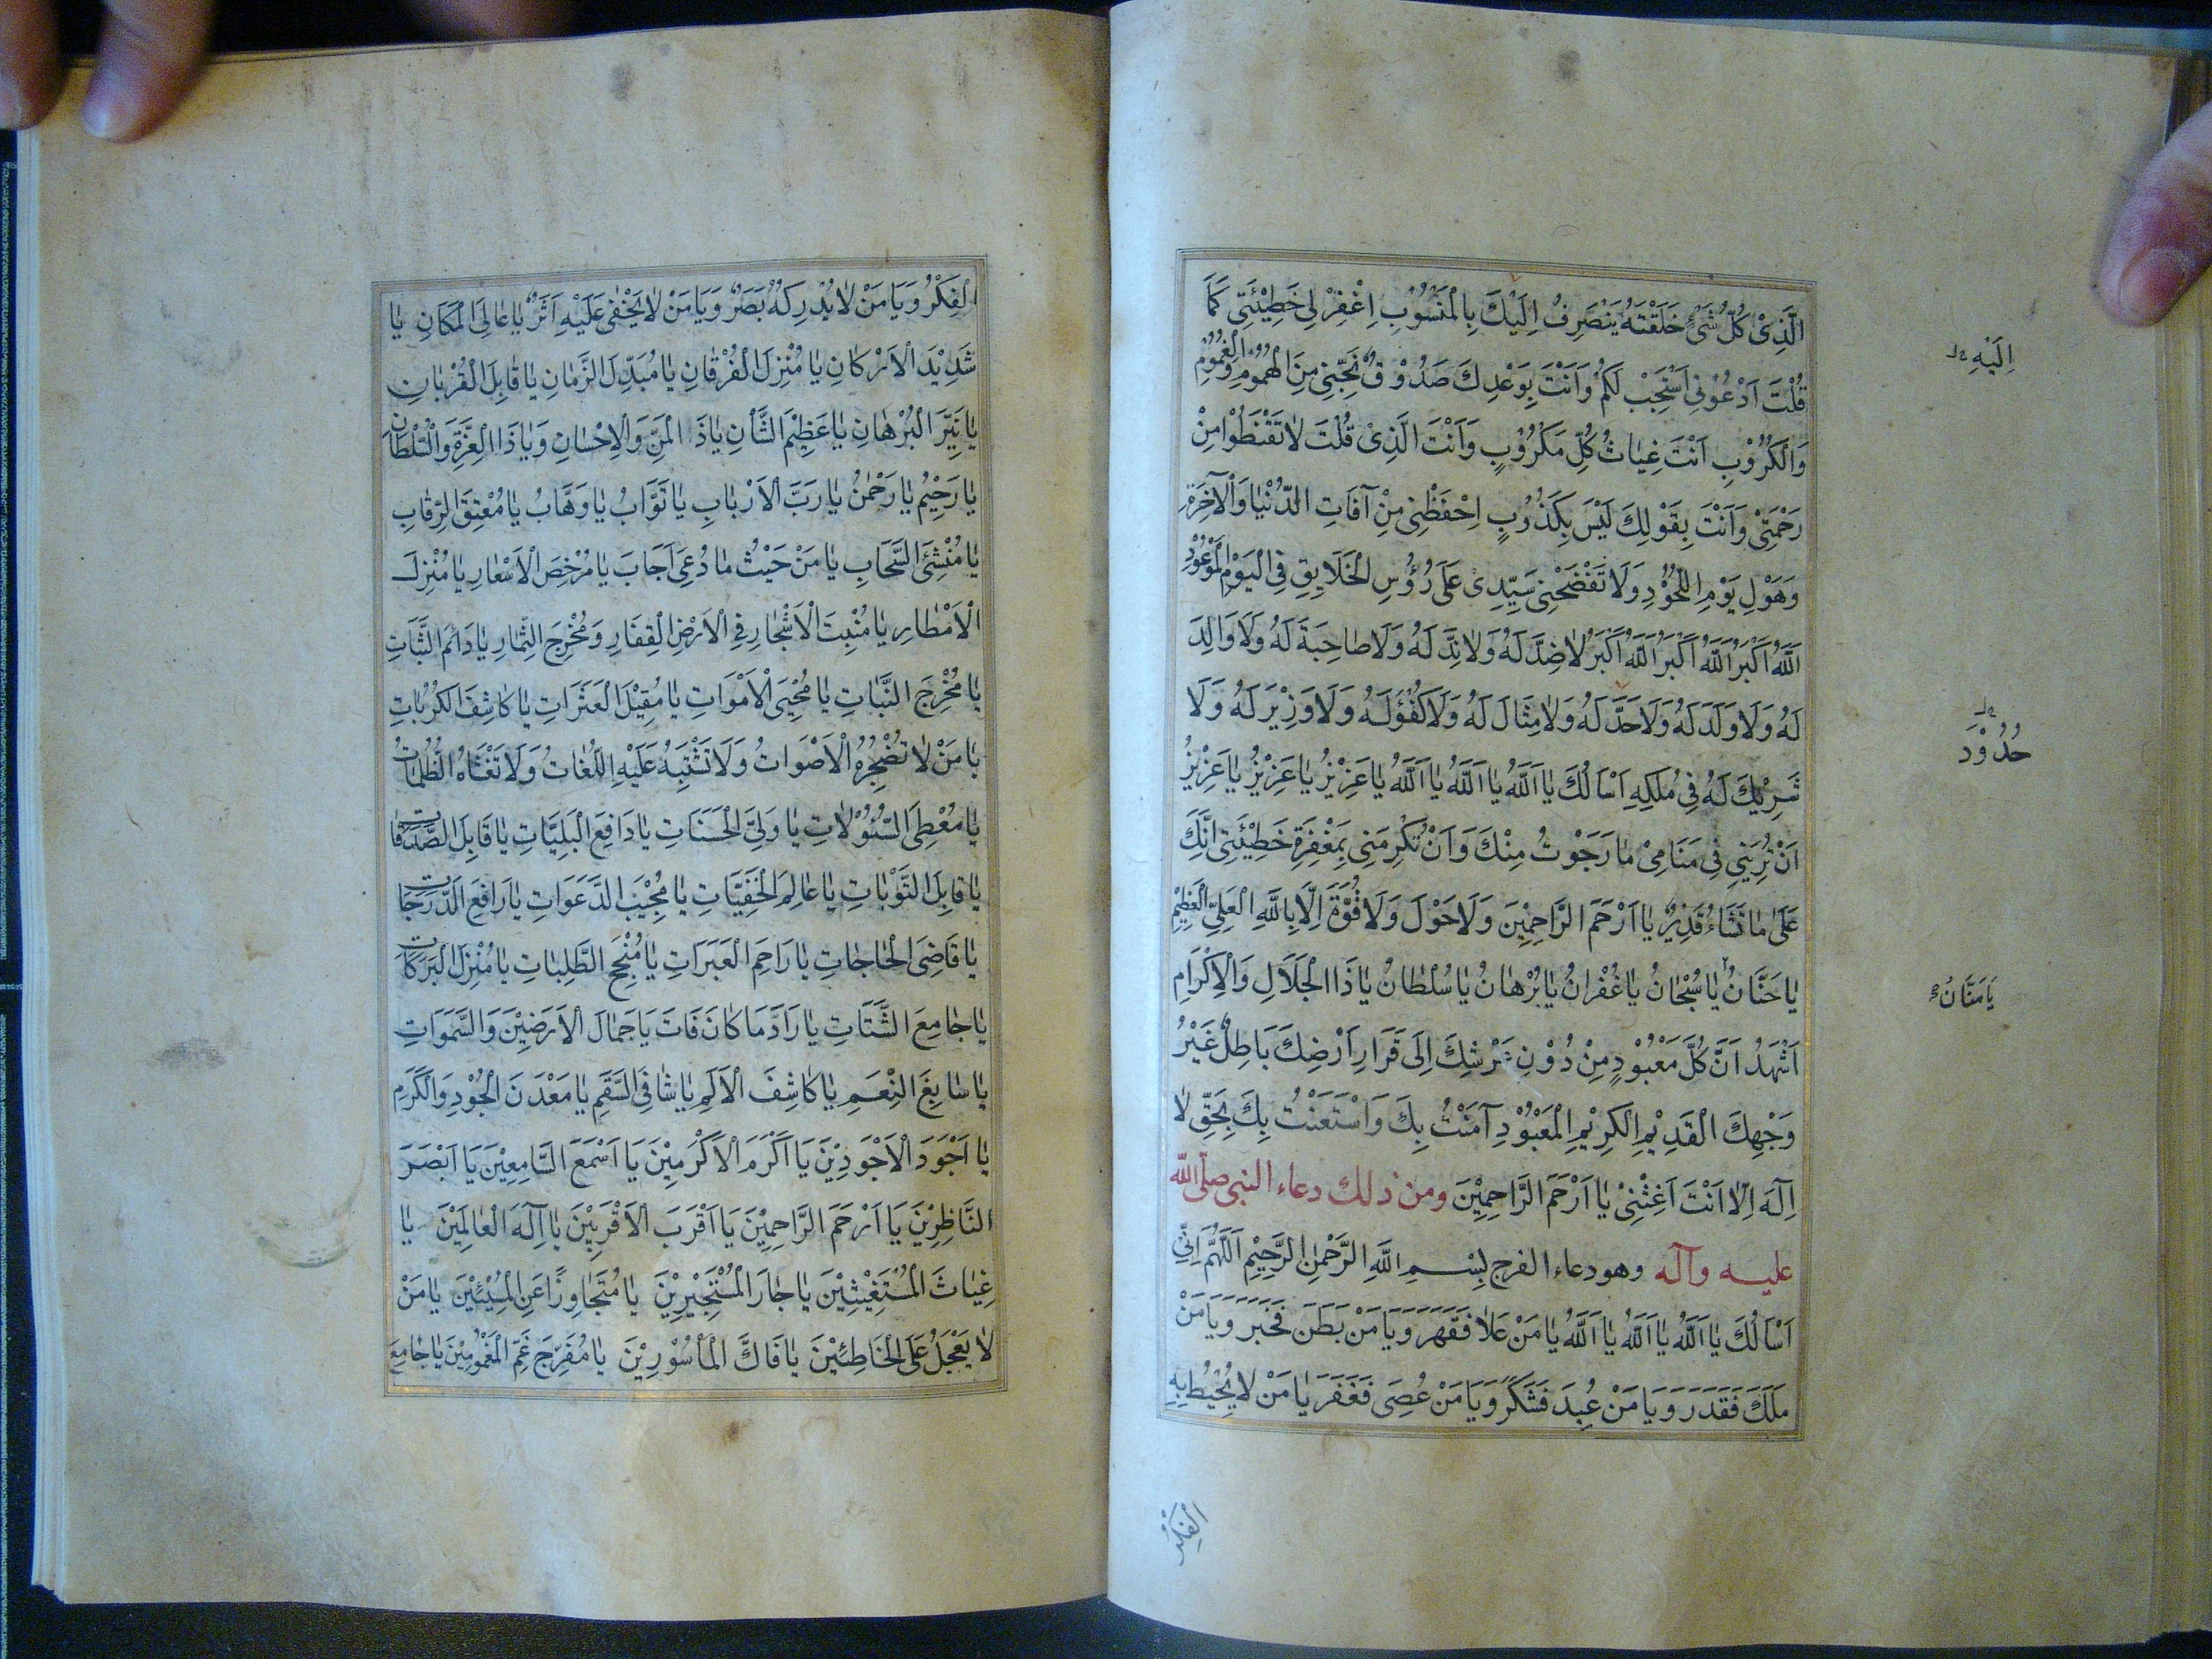 الَّذِيْ كُلُّ شَيْءٍ خَلَقْتَهُ يَنْصَرِفُ اِلَيْكَ بِالْمَنْسُوْبِ اِغْفِرْ لِي خَطِيْئَتِي كَمَا
اِلَيْهِ
قُلْتَ اَدْعُوْنِي اَسْتَجِبْ لَكُمْ وَاَنْتَ بِوَعْدِكَ صَدُوْقٌ نَجِّنِي مِنَ الْهُمُوْمِ وَالْغُمُوْمِ
وَالْكُرُوْبِ اَنْتَ غِيَاثُ كُلِّ مَكْرُوْبٍ وَاَنْتَ الَّذِيْ قُلْتَ لَا تَقْنَطُوْا مِنْ
رَحْمَتِيْ وَاَنْتَ بِقَوْلِكَ لَيْسَ بِكَذُوْبٍ اِحْفَظْنِي مِنْ آفَاتِ الدُّنْيَا وَالْآخِرَةِ
وَهَوْلِ يَوْمِ اللُّحُوْدِ وَلَا تَفْضَحْنِي سَيِّدِيْ عَلَى رُؤُسِ الْخَلَايِقِ فِي الْيَوْمِ الْمَوْعُوْدِ
اَللَّهُ اَكْبَرُ اَللَّهُ اَكْبَرُ اَللَّهُ اَكْبَرُ لَا ضِدَّ لَهُ وَلَا نِدَّ لَهُ وَلَا صَاحِبَةَ لَهُ وَلَا وَالِدَ
لَهُ وَلَا وَلَدَ لَهُ وَلَا حَدَّ لَهُ وَلَا مِثَالَ لَهُ وَلَا كُفُؤَ لَهُ وَلَا وَزِيْرَ لَهُ وَلَا
حُدُوْدَ
شَرِيْكَ لَهُ فِي مُلْكِهِ اَسْاَلُكَ يَا اَللَّهُ يَا اَللَّهُ يَا اَللَّهُ يَا عَزِيْزُ يَا عَزِيْزُ يَا عَزِيْزُ
اَنْ تُرِيَنِي فِي مَنَامِيْ مَا رَجَوْتُ مِنْكَ وَاَنْ تُكْرِمَنِي بِمَغْفِرَةِ خَطِيْئَتِي اِنَّكَ
عَلَى مَا تَشَاءُ قَدِيْرٌ يَا اَرْحَمَ الرَّاحِمِيْنَ وَلَا حَوْلَ وَلَا قُوَّةَ اِلَّا بِاللَّهِ الْعَلِيِّ الْعَظِيْمِ
يَا حَنَّانُ يَا سُبْحَانُ يَا غُفْرَانُ يَا بُرْهَانُ يَا سُلْطَانُ يَا ذَا الْجَلَالِ وَالْاِكْرَامِ
يَا مَنَّانُ
اَشْهَدُ اَنَّ كُلَّ مَعْبُوْدٍ مِنْ دُوْنِ عَرْشِكَ اِلَى قَرَارِ اَرْضِكَ بَاطِلٌ غَيْرُ
وَجْهِكَ الْقَدِيْمِ الْكَرِيْمِ الْمَعْبُوْدِ آمَنْتُ بِكَ وَاسْتَعَنْتُ بِكَ بِحَقِّ لَا
اِلَهَ اِلَّا اَنْتَ اَغِثْنِيْ يَا اَرْحَمَ الرَّاحِمِيْنَ ومن ذلك دعاء النبي صلّى اللّه
عليه وآله وهو دعاء الفرج بِسْمِ اللَّهِ الرَّحْمٰنِ الرَّحِيْمِ اَللَّهُمَّ اِنِّي
اَسْاَلُكَ يَا اَللَّهُ يَا اَللَّهُ يَا اَللَّهُ يَا مَنْ عَلَا فَقَهَرَ وَيَا مَنْ بَطَنَ فَخَبَرَ وَيَا مَنْ
مَلَكَ فَقَدَرَ وَيَا مَنْ عُبِدَ فَشَكَرَ وَيَا مَنْ عُصِيَ فَغَفَرَ يَا مَنْ لَا يُحِيْطُ بِهِ
الْفِكْرُ
الْفِكْرُ وَيَا مَنْ لَا يُدْرِكُهُ بَصَرٌ وَيَا مَنْ لَا يَخْفَى عَلَيْهِ اَثَرٌ يَا عَالِيَ الْمَكَانِ يَا
شَدِيْدَ الْاَرْكَانِ يَا مُنْزِلَ الْفُرْقَانِ يَا مُبَدِّلَ الزَّمَانِ يَا قَابِلَ الْقُرْبَانِ
يَا نَيِّرَ الْبُرْهَانِ يَا عَظِيْمَ الشَّأْنِ يَا ذَ الْمَنِّ وَالْاِحْسَانِ وَيَا ذَا الْعِزَّةِ وَالسُّلْطَانِ
يَا رَحِيْمُ يَا رَحْمٰنُ يَا رَبَّ الْاَرْبَابِ يَا تَوَّابُ يَا وَهَّابُ يَا مُعْتِقَ الرِّقَابِ
يَا مُنْشِئَ السَّحَابِ يَا مَنْ حَيْثُ مَا دُعِيَ اَجَابَ يَا مُرْخِصَ الْاَسْعَارِ يَا مُنْزِلَ
الْاَمْطَارِ يَا مُنْبِتَ الْاَشْجَارِ فِي الْاَرْضِ الْقِفَارِ وَمُخْرِجَ الثِّمَارِ يَا دَائِمَ الثَّبَاتِ
يَا مُخْرِجَ النَّبَاتِ يَا مُحْيِيَ الْاَمْوَاتِ يَا مُقِيْلَ الْعَثَرَاتِ يَا كَاشِفَ الْكُرُبَاتِ
يَا مَنْ لَا تُضْجِرُهُ الْاَصْوَاتُ وَلَا تَشْتَبِهُ عَلَيْهِ اللُّغَاتُ وَلَا تَغْشَاهُ الظُّلُمَاتُ
يَا مُعْطِيَ السُّؤُلَاتِ يَا وَلِيَّ الْحَسَنَاتِ يَا دَافِعَ الْبَلِيَّاتِ يَا قَابِلَ الصَّدَقَاتِ
يَا قَابِلَ التَّوْبَاتِ يَا عَالِمَ الْخَفِيَّاتِ يَا مُجِيْبَ الدَّعَوَاتِ يَا رَافِعَ الدَّرَجَاتِ
يَا قَاضِيَ الْحَاجَاتِ يَا رَاحِمَ الْعَبَرَاتِ يَا مُنْجِحَ الطَّلِبَاتِ يَا مُنْزِلَ الْبَرَكَاتِ
يَا جَامِعَ الشَّتَاتِ يَا رَادَّ مَا كَانَ فَاتَ يَا جَمَالَ الْاَرَضِيْنَ وَالسَّمَوَاتِ
يَا سَابِغَ النِّعَمِ يَا كَاشِفَ الْاَلَمِ يَا شَافِيَ السَّقَمِ يَا مَعْدَنَ الْجُوْدِ وَالْكَرَمِ
يَا اَجْوَدَ الْاَجْوَدِيْنَ يَا اَكْرَمَ الْاَكْرَمِيْنَ يَا اَسْمَعَ السَّامِعِيْنَ يَا اَبْصَرَ
النَّاظِرِيْنَ يَا اَرْحَمَ الرَّاحِمِيْنَ يَا اَقْرَبَ الْاَقْرَبِيْنَ يَا اِلَهَ الْعَالَمِيْنَ يَا
غِيَاثَ الْمُسْتَغِيْثِيْنَ يَا جَارَ الْمُسْتَجِيْرِيْنَ يَا مُتَجَاوِزًا عَنِ الْمُسِيْئِيْنَ يَا مَنْ
لَا يَعْجَلُ عَلَى الْخَاطِئِيْنَ يَا فَاكَّ الْمَأْسُوْرِيْنَ يَا مُفَرِّجَ غَمِّ الْمَغْمُوْمِيْنَ يَا جَامِعَ